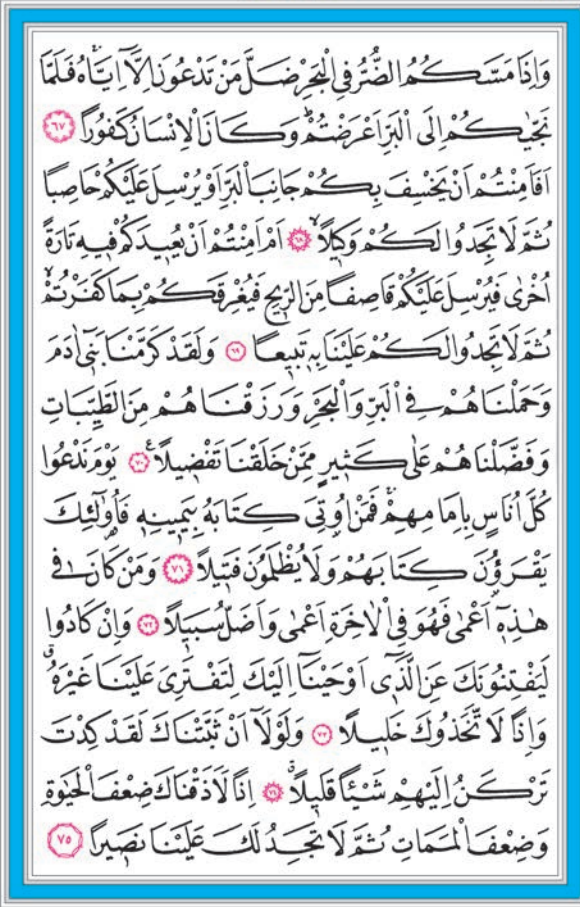 وَاِذَا مَسَّكُمُ الضُّرُّ فِي الْبَحْرِ ضَلَّ مَنْ تَدْعُونَ اِلَّٓا اِيَّاهُۚ فَلَمَّا
نَجّٰيكُمْ اِلَى الْبَرِّ اَعْرَضْتُمْۜ وَكَانَ الْاِنْسَانُ كَفُورًا ﴿٦٧﴾
اَفَاَمِنْتُمْ اَنْ يَخْسِفَ بِكُمْ جَانِبَ الْبَرِّ اَوْ يُرْسِلَ عَلَيْكُمْ حَاصِبًا
ثُمَّ لَا تَجِدُوا لَكُمْ وَكِيلًاۙ ﴿٦٨﴾ اَمْ اَمِنْتُمْ اَنْ يُعِيدَكُمْ فِيهِ تَارَةً
اُخْرٰى فَيُرْسِلَ عَلَيْكُمْ قَاصِفًا مِنَ الرِّيحِ فَيُغْرِقَكُمْ بِمَا كَفَرْتُمْۙ
ثُمَّ لَا تَجِدُوا لَكُمْ عَلَيْنَا بِهِ تَبِيعًا ﴿٦٩﴾ وَلَقَدْ كَرَّمْنَا بَنِٓي اٰدَمَ
وَحَمَلْنَاهُمْ فِي الْبَرِّ وَالْبَحْرِ وَرَزَقْنَاهُمْ مِنَ الطَّيِّبَاتِ
وَفَضَّلْنَاهُمْ عَلٰى كَثِيرٍ مِمَّنْ خَلَقْنَا تَفْضِيلًاۧ ﴿٧٠﴾ يَوْمَ نَدْعُوا
كُلَّ اُنَاسٍ بِاِمَامِهِمْۚ فَمَنْ اُو۫تِيَ كِتَابَهُ بِيَمِينِهِ فَاُو۬لٰٓئِكَ
يَقْرَؤُ۫نَ كِتَابَهُمْ وَلَا يُظْلَمُونَ فَتِيلًا ﴿٧١﴾ وَمَنْ كَانَ فِي
هٰذِهِٓ اَعْمٰى فَهُوَ فِي الْاٰخِرَةِ اَعْمٰى وَاَضَلُّ سَبِيلًا ﴿٧٢﴾ وَاِنْ كَادُوا
لَيَفْتِنُونَكَ عَنِ الَّذِٓي اَوْحَيْنَٓا اِلَيْكَ لِتَفْتَرِيَ عَلَيْنَا غَيْرَهُۗ
وَاِذًا لَاتَّخَذُوكَ خَلِيلًا ﴿٧٣﴾ وَلَوْلَٓا اَنْ ثَبَّتْنَاكَ لَقَدْ كِدْتَ
تَرْكَنُ اِلَيْهِمْ شَيْـًٔا قَلِيلًاۗ ﴿٧٤﴾ اِذًا لَاَذَقْنَاكَ ضِعْفَ الْحَيٰوةِ
وَضِعْفَ الْمَمَاتِ ثُمَّ لَا تَجِدُ لَكَ عَلَيْنَا نَصِيرًا ﴿٧٥﴾